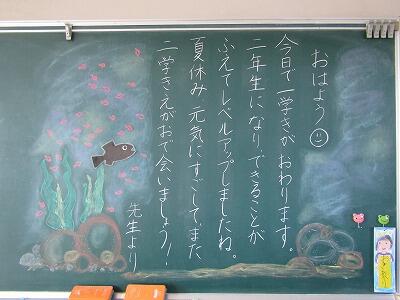 おはよう
今日で一学きがおわります。
二年生になり、できることが
ふえてレベルアップしましたね。
夏休み 元気にすごして、また
二学きえがおで会いましょう!
先生より